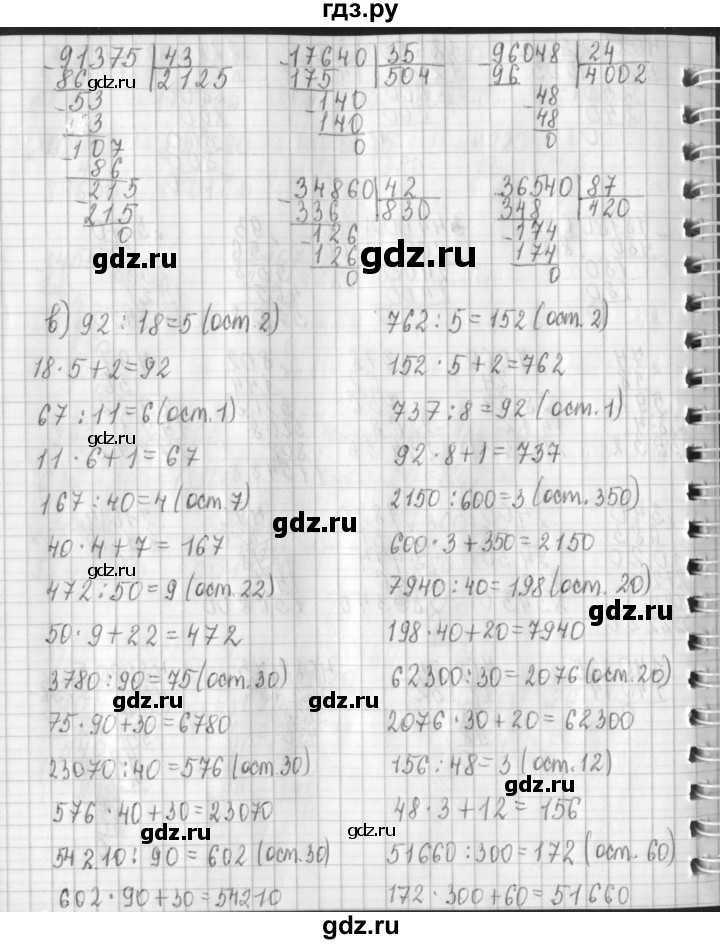 гдз.ру
91375 | 43
86 2125
- 53
3
- 107
86
- 215
215
0
- 17640 | 35
175 504
- 140
140
0
- 96048 | 24
96 4002
- 48
48
0
- 34860 | 42
336 830
- 126
126
0
- 36540 | 87
348 420
- 174
174
0
gdz.ru
gdz.ru
gdz.ru
в) 92 : 18 = 5 (ост. 2)
18 · 5 + 2 = 92
67 : 11 = 6 (ост. 1)
gdz.ru
11 · 6 + 1 = 67
167 : 40 = 4 (ост. 7)
gdz.ru
40 · 4 + 7 = 167
gdz.ru
472 : 50 = 9 (ост. 22)
50 · 9 + 22 = 472
3780 : 90 = 75 (ост. 30)
gdz.ru
75 · 90 + 30 = 6780
23070 : 40 = 576 (ост. 30)
576 · 40 + 30 = 23070
gdz.ru
54210 : 90 = 602 (ост. 30)
602 · 90 + 30 = 54210
762 : 5 = 152 (ост. 2)
152 · 5 + 2 = 762
737 : 8 = 92 (ост. 1)
92 · 8 + 1 = 737
2150 : 600 = 3 (ост. 350)
gdz.ru
600 · 3 + 350 = 2150
7940 : 40 = 198 (ост. 20)
gdz.ru
198 · 40 + 20 = 7940
62300 : 30 = 2076 (ост. 20)
gdz.ru
2076 · 30 + 20 = 62300
156 : 48 = 3 (ост. 12)
gdz.ru
48 · 3 + 12 = 156
gdz.ru
51660 : 300 = 172 (ост. 60)
gdz.ru
172 · 300 + 60 = 51660
gdz.ru